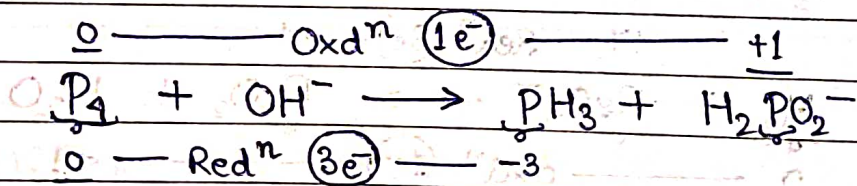 0 —— Oxdⁿ (1e⁻) —— +1
P₄ + OH⁻ ⟶ PH₃ + H₂PO₂⁻
0 — Redⁿ (3e⁻) — -3